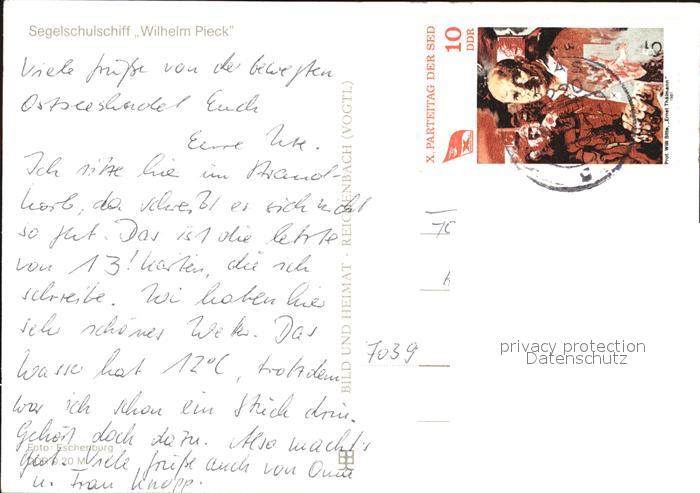 Segelschulschiff „Wilhelm Pieck"
Viele Grüße von der bewegten
Ostsee sendet Euch
Eure Ute.
Ich sitze hier im Strand-
korb, da schreibt es sich nicht
so gut. Das ist die letzte
von 13! Karten, die ich
schreibe. Wir haben hier
sehr schönes Wetter. Das
Wasser hat 12°C, trotzdem
war ich schon ein Stück drin.
Gehört doch dazu. Also macht's
gut. Viele Grüße auch von Oma
u. Frau Knopp.
Foto: Eschenburg
0,20 M
BILD UND HEIMAT · REICHENBACH (VOGTL)
X. PARTEITAG DER SED
10
DDR
Prof. Willi Sitte, „Ernst Thälmann"
7039
privacy protection
Datenschutz